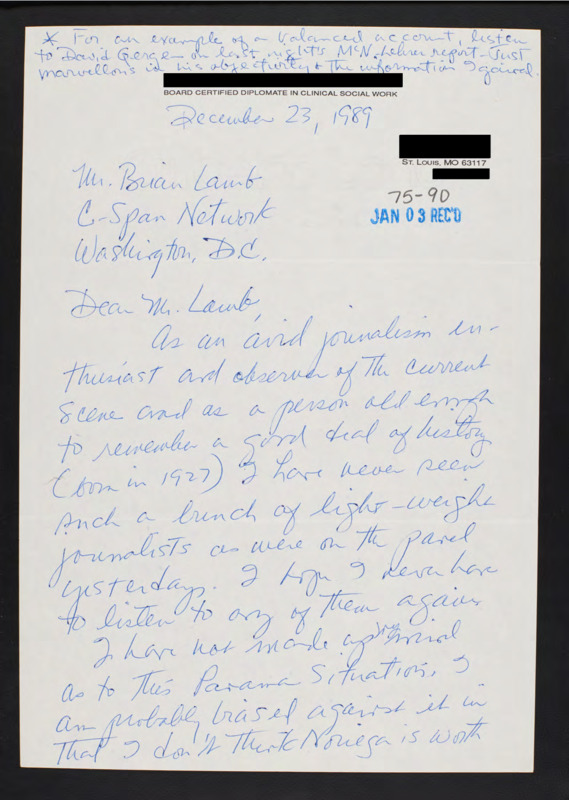 * For an example of a balanced account, listen
to David Gergen on last night's McN. Lehrer report - Just
marvellous in his objectivity & the information I gained.
BOARD CERTIFIED DIPLOMATE IN CLINICAL SOCIAL WORK
December 23, 1989
ST. LOUIS, MO 63117
75-90
JAN 03 REC'D
Mr. Brian Lamb
C-Span Network
Washington, D.C.
Dear Mr. Lamb,
As an avid journalism en-
thusiast and observer of the current
scene and as a person old enough
to remember a good deal of history
(born in 1927) I have never seen
such a bunch of light-weight
journalists as were on the panel
yesterday. I hope I never have
to listen to any of them again.
I have not made up my mind
as to this Panama Situation. I
am probably biased against it in
that I don't think Noriega is worth